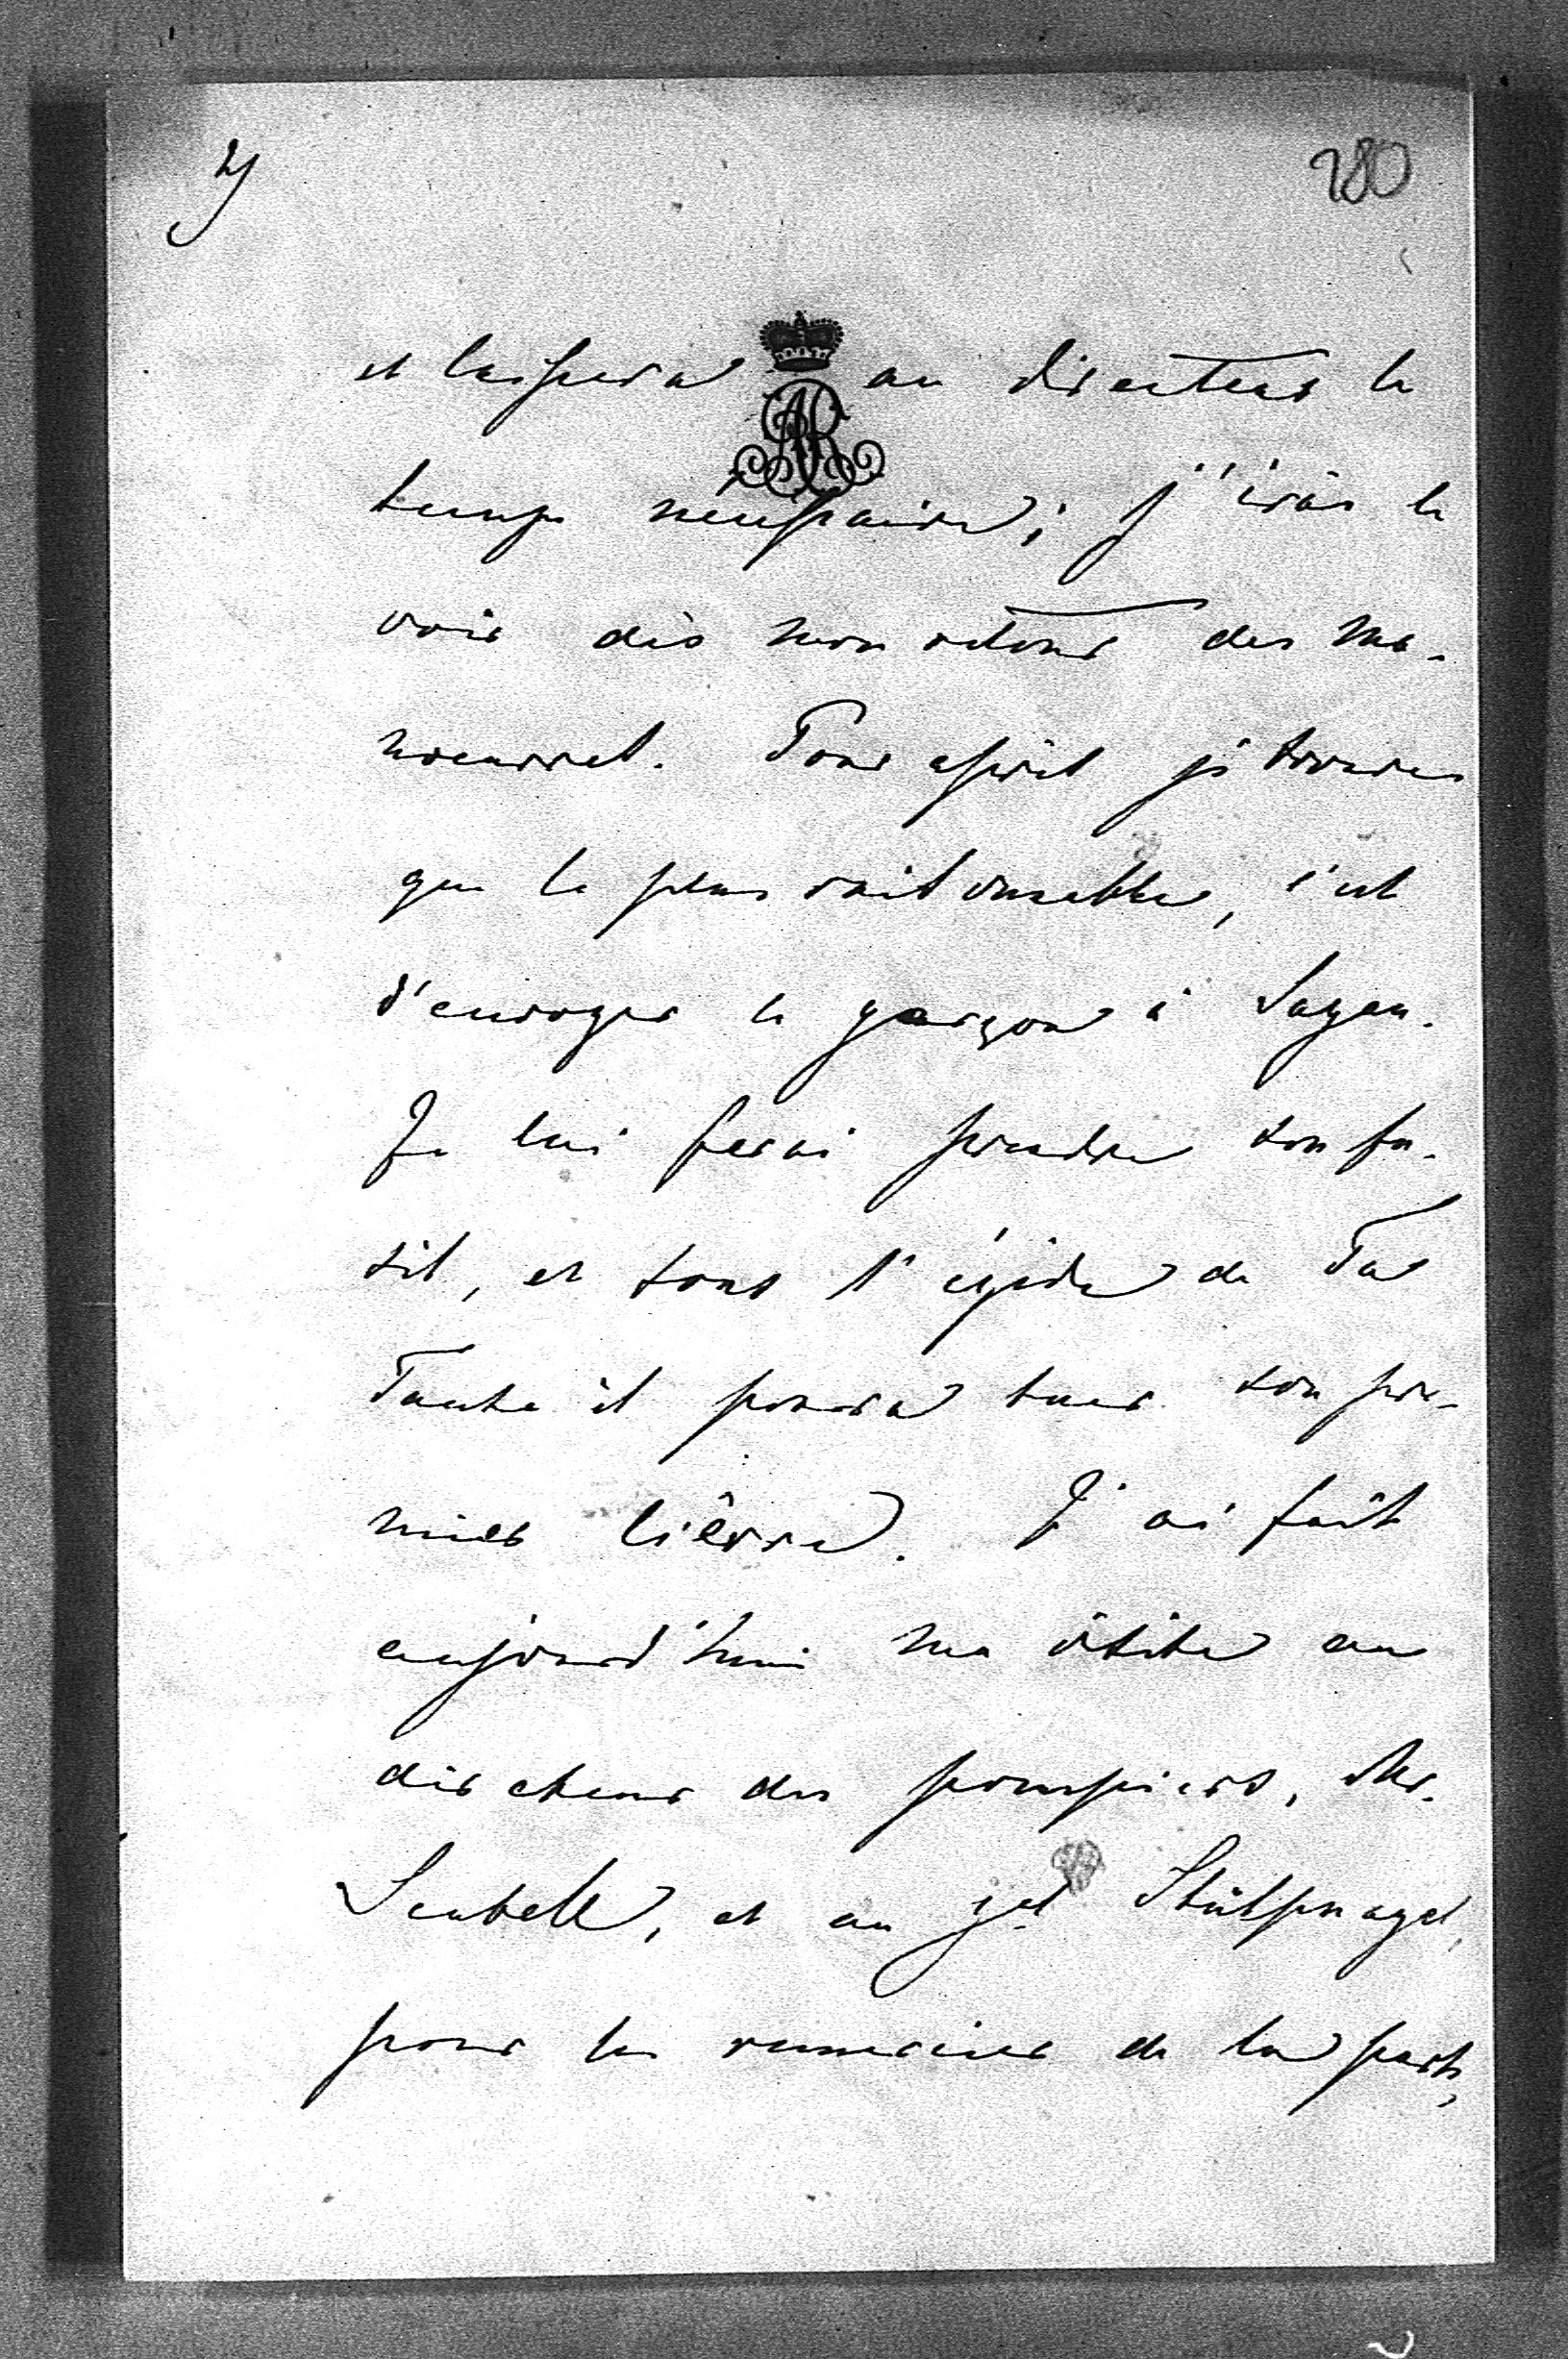 y
280
AR
et laissera au directeur le
temps nécessaire; j'irai le
voir dès mon retour des ma-
noeuvres. Pour après je trouve
que le plus raisonnable, c'est
d'envoyer le garçon à Sagan.
Je lui ferai prendre son fu-
sil, et sous l'égide de Ta
Tante il pourra tuer son pre-
mier lièvre. J'ai fait
aujourd'hui ma visite au
directeur des pompiers, Mr.
Scabell, et au gel Stülpnagel,
pour les remercier de la part,